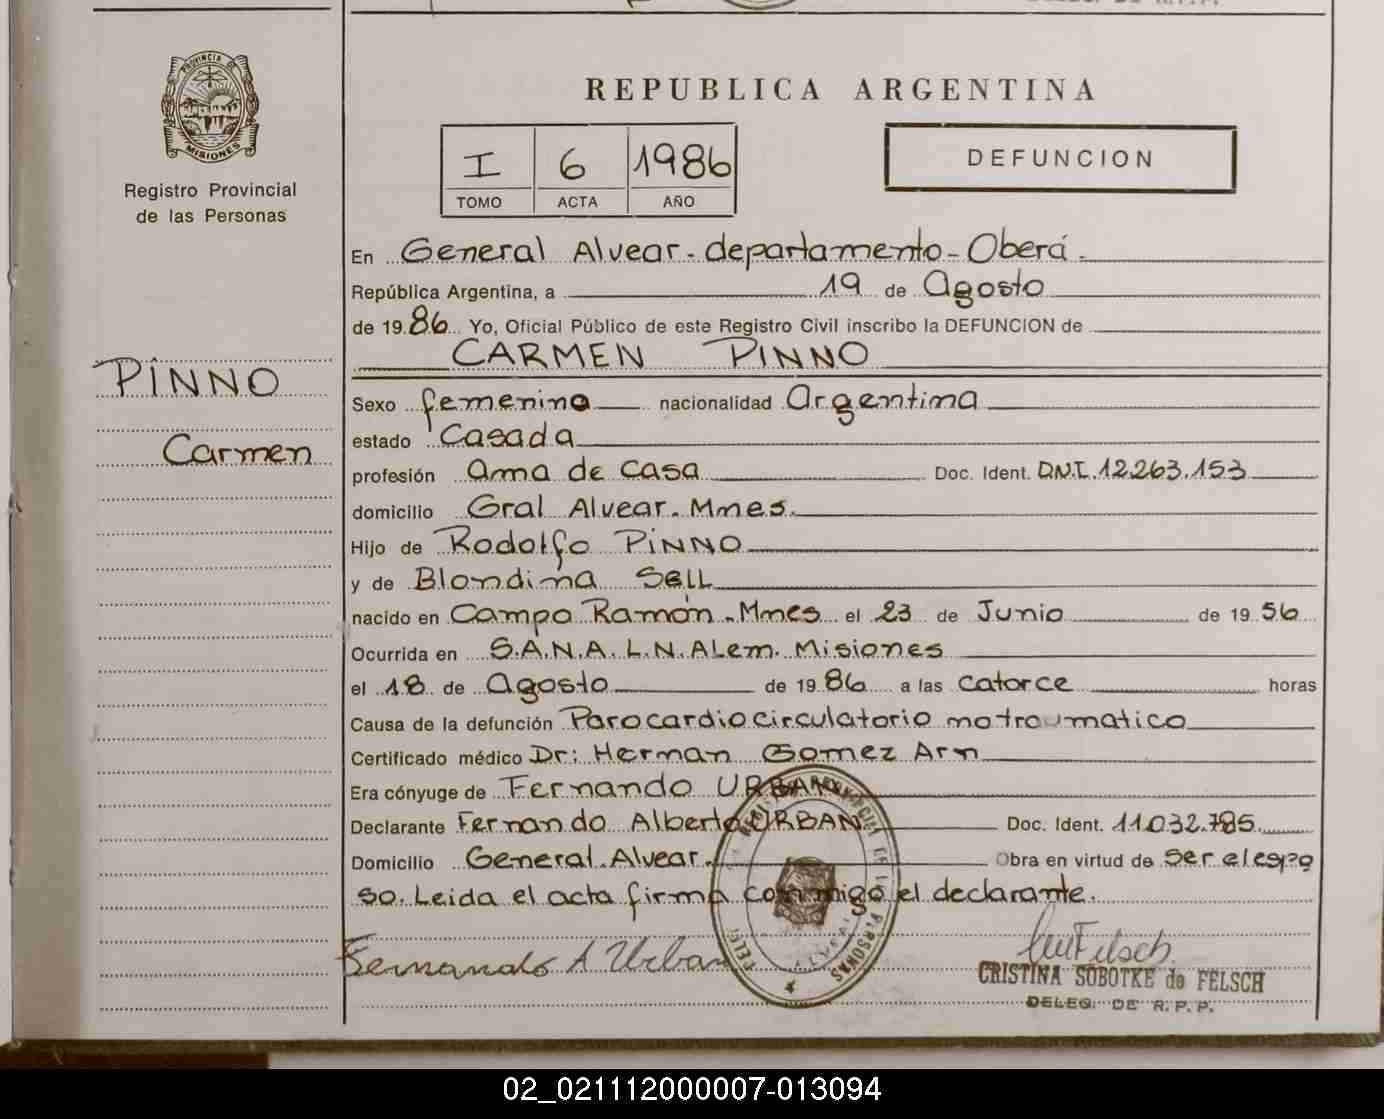 PROVINCIA DE
MISIONES
Registro Provincial
de las Personas
REPUBLICA ARGENTINA
I 6 1986
TOMO ACTA AÑO
DEFUNCION
En General Alvear - departamento - Oberá.
República Argentina, a 19 de Agosto
de 1986 Yo, Oficial Público de este Registro Civil inscribo la DEFUNCION de
CARMEN PINNO
PINNO
Carmen
Sexo femenino nacionalidad Argentina
estado Casada
profesión ama de casa Doc. Ident. D.N.I. 12.263.153
domicilio Gral Alvear. Mnes.
Hijo de Rodolfo PINNO
y de Blondina SELL
nacido en Campo Ramón - Mnes el 23 de Junio de 1956
Ocurrida en S.A.N.A. L.N. ALem. Misiones
el 18 de Agosto de 1986 a las catorce horas
Causa de la defunción Parocardiocirculatorio notraumatico
Certificado médico Dr: Herman Gomez Arn
Era cónyuge de Fernando URBAN
Declarante Fernando Alberto URBAN Doc. Ident. 11.032.785
Domicilio General Alvear. Obra en virtud de Ser el espo
so. Leida el acta firma conmigo el declarante.
Fernando A Urban
CRISTINA SOBOTKE de FELSCH
DELEG. DE R.P.P.
02_021112000007-013094